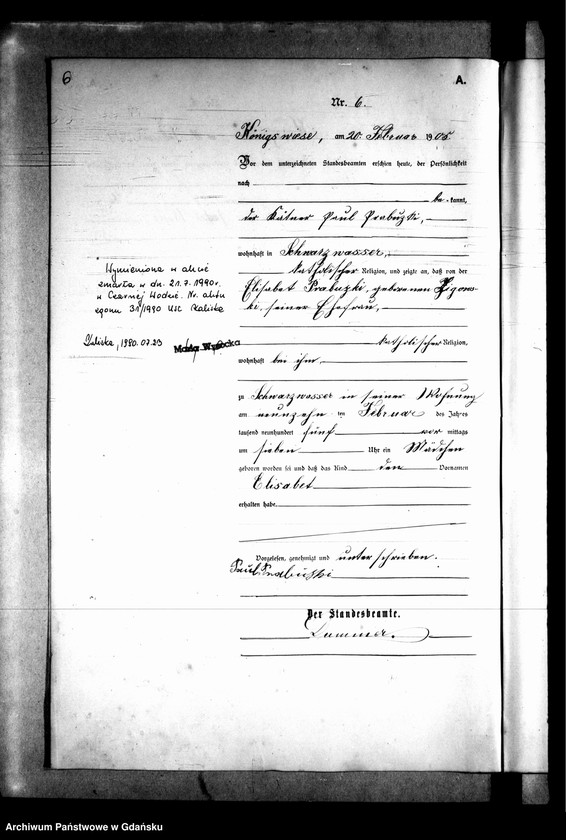 6
A.
Nr. 6.
Königswiese, am 20. Februar 1905
Vor dem unterzeichneten Standesbeamten erschien heute, der Persönlichkeit
nach
be kannt,
der Kätner Paul Prabuzki,
wohnhaft in Schwarzwasser,
katholischer Religion, und zeigte an, daß von der
Elisabet Prabuzki, geborenen
ki, seiner Ehefrau,
katholischer Religion,
wohnhaft bei ihm,
zu Schwarzwasser in seiner Wohnung
am neunzehn ten Februar des Jahres
tausend neunhundert fünf vor mittags
um sieben Uhr ein Mädchen
geboren worden sei und daß das Kind den Vornamen
Elisabet
erhalten habe.
Vorgelesen, genehmigt und unterschrieben.
Paul Prabuzki
Der Standesbeamte.
Wymieniona w akcie
zmarła w dn. 21.7.1990r.
w Czarnej Wodzie. Nr. aktu
zgonu 31/1990 USC Kaliska
Kaliska, 1990.07.23
Maria Wysocka
Archiwum Państwowe w Gdańsku